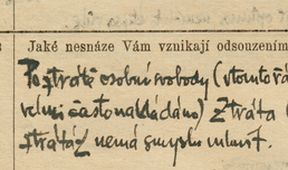 Jaké nesnáze Vám vznikají odsouzením
Po ztrátě osobní svobody (v tomto
velmi často nakládáno) Ztráta (
ztrátě nemá smyslu mluvit.